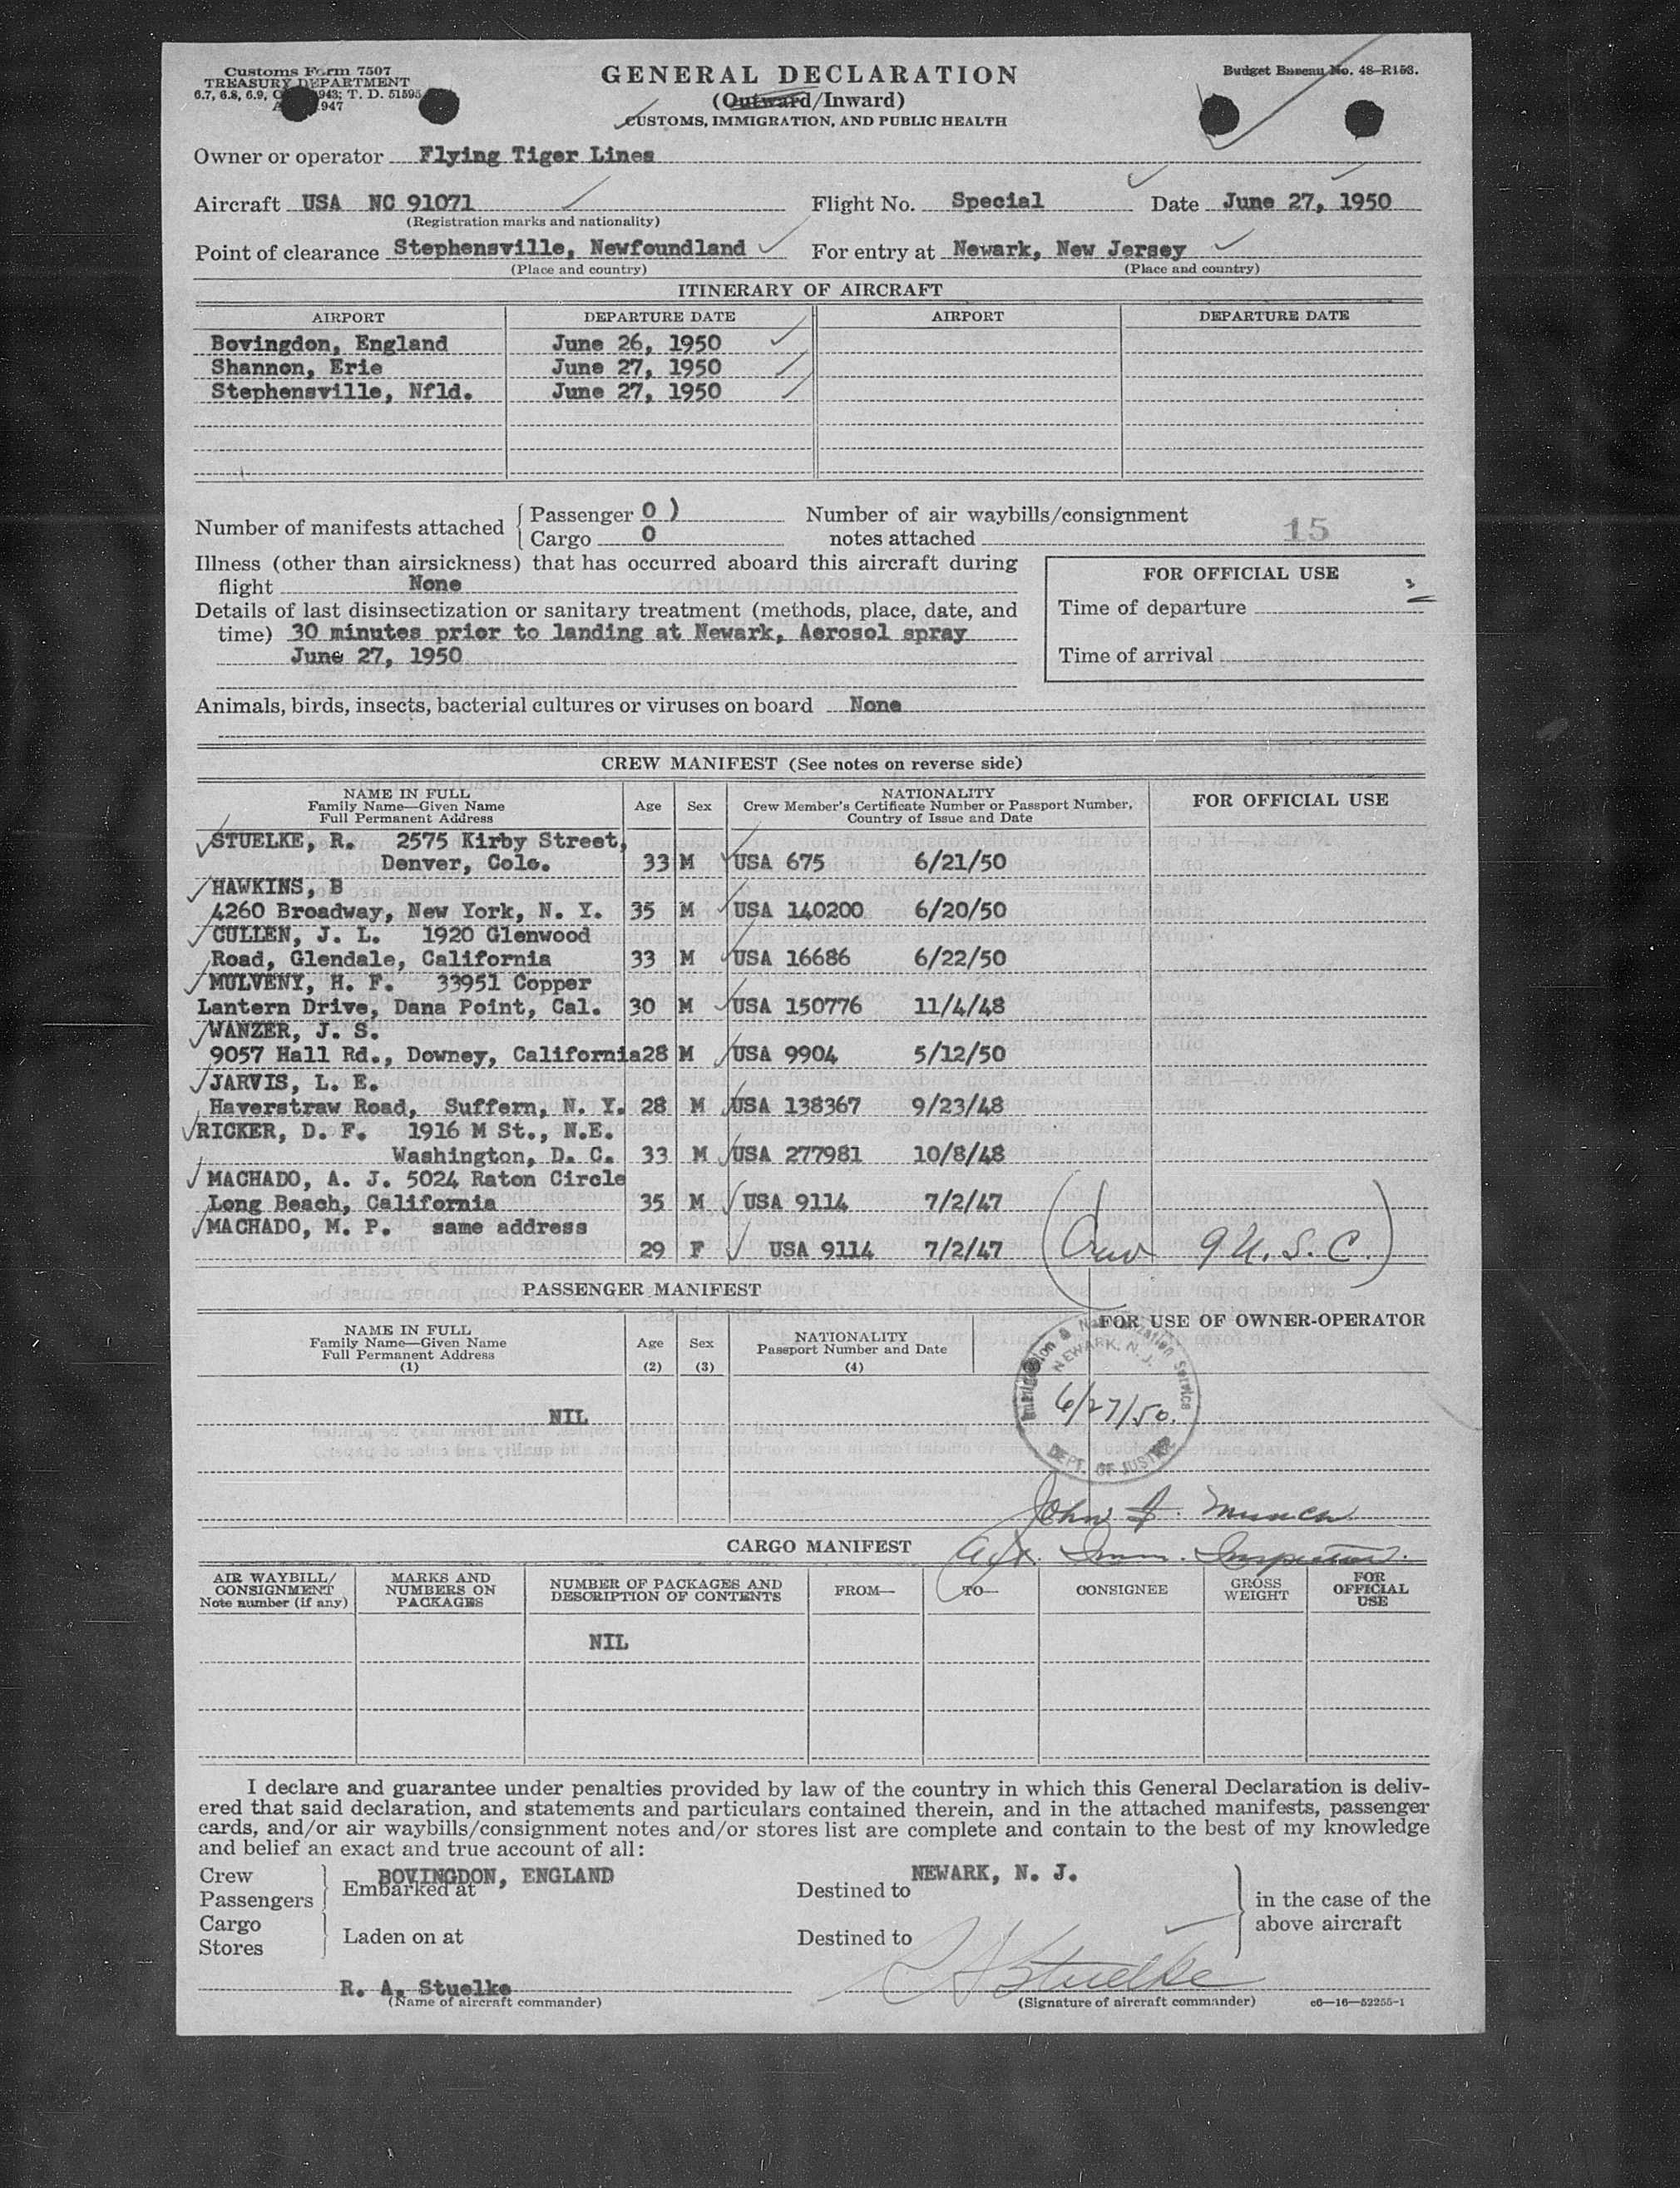 Customs Form 7507
TREASURY DEPARTMENT
6.7, 6.8, 6.9, 1943; T. D. 51595
1947
GENERAL DECLARATION
(Outward/Inward)
CUSTOMS, IMMIGRATION, AND PUBLIC HEALTH
Budget Bureau No. 48-R153.
Owner or operator Flying Tiger Lines
Aircraft USA NC 91071 Flight No. Special Date June 27, 1950
(Registration marks and nationality)
Point of clearance Stephensville, Newfoundland For entry at Newark, New Jersey
(Place and country) (Place and country)
ITINERARY OF AIRCRAFT
AIRPORT DEPARTURE DATE AIRPORT DEPARTURE DATE
Bovingdon, England June 26, 1950
Shannon, Erie June 27, 1950
Stephensville, Nfld. June 27, 1950
Number of manifests attached { Passenger 0 ) Number of air waybills/consignment
Cargo 0 notes attached 15
Illness (other than airsickness) that has occurred aboard this aircraft during
flight None
FOR OFFICIAL USE
Details of last disinsectization or sanitary treatment (methods, place, date, and
Time of departure
time) 30 minutes prior to landing at Newark, Aerosol spray
June 27, 1950
Time of arrival
Animals, birds, insects, bacterial cultures or viruses on board None
CREW MANIFEST (See notes on reverse side)
NAME IN FULL
Family Name—Given Name
Full Permanent Address
Age Sex
NATIONALITY
Crew Member's Certificate Number or Passport Number,
Country of Issue and Date
FOR OFFICIAL USE
STUELKE, R. 2575 Kirby Street,
Denver, Colo. 33 M USA 675 6/21/50
HAWKINS, B
4260 Broadway, New York, N. Y. 35 M USA 140200 6/20/50
CULLEN, J. L. 1920 Glenwood
Road, Glendale, California 33 M USA 16686 6/22/50
MULVENY, H. F. 33951 Copper
Lantern Drive, Dana Point, Cal. 30 M USA 150776 11/4/48
WANZER, J. S.
9057 Hall Rd., Downey, California 28 M USA 9904 5/12/50
JARVIS, L. E.
Haverstraw Road, Suffern, N. Y. 28 M USA 138367 9/23/48
RICKER, D. F. 1916 M St., N.E.
Washington, D. C. 33 M USA 277981 10/8/48
MACHADO, A. J. 5024 Raton Circle
Long Beach, California 35 M USA 9114 7/2/47
MACHADO, M. P. same address
29 F USA 9114 7/2/47
(Crew 9 U.S.C.)
PASSENGER MANIFEST
FOR USE OF OWNER-OPERATOR
NAME IN FULL
Family Name—Given Name
Full Permanent Address
(1)
Age
(2)
Sex
(3)
NATIONALITY
Passport Number and Date
(4)
Immigration & Naturalization Service
NEWARK, N. J.
6/27/50.
DEPT. OF JUSTICE
NIL
John
Imm. Inspector.
CARGO MANIFEST
AIR WAYBILL/
CONSIGNMENT
Note number (if any)
MARKS AND
NUMBERS ON
PACKAGES
NUMBER OF PACKAGES AND
DESCRIPTION OF CONTENTS
FROM— TO— CONSIGNEE
GROSS
WEIGHT
FOR
OFFICIAL
USE
NIL
I declare and guarantee under penalties provided by law of the country in which this General Declaration is deliv-
ered that said declaration, and statements and particulars contained therein, and in the attached manifests, passenger
cards, and/or air waybills/consignment notes and/or stores list are complete and contain to the best of my knowledge
and belief an exact and true account of all:
Crew
Passengers
BOVINGDON, ENGLAND
Embarked at
NEWARK, N. J.
Destined to
Cargo
Stores
Laden on at
Destined to
in the case of the
above aircraft
R. A. Stuelke
(Name of aircraft commander)
R A Stuelke
(Signature of aircraft commander)
c6—16—52255-1